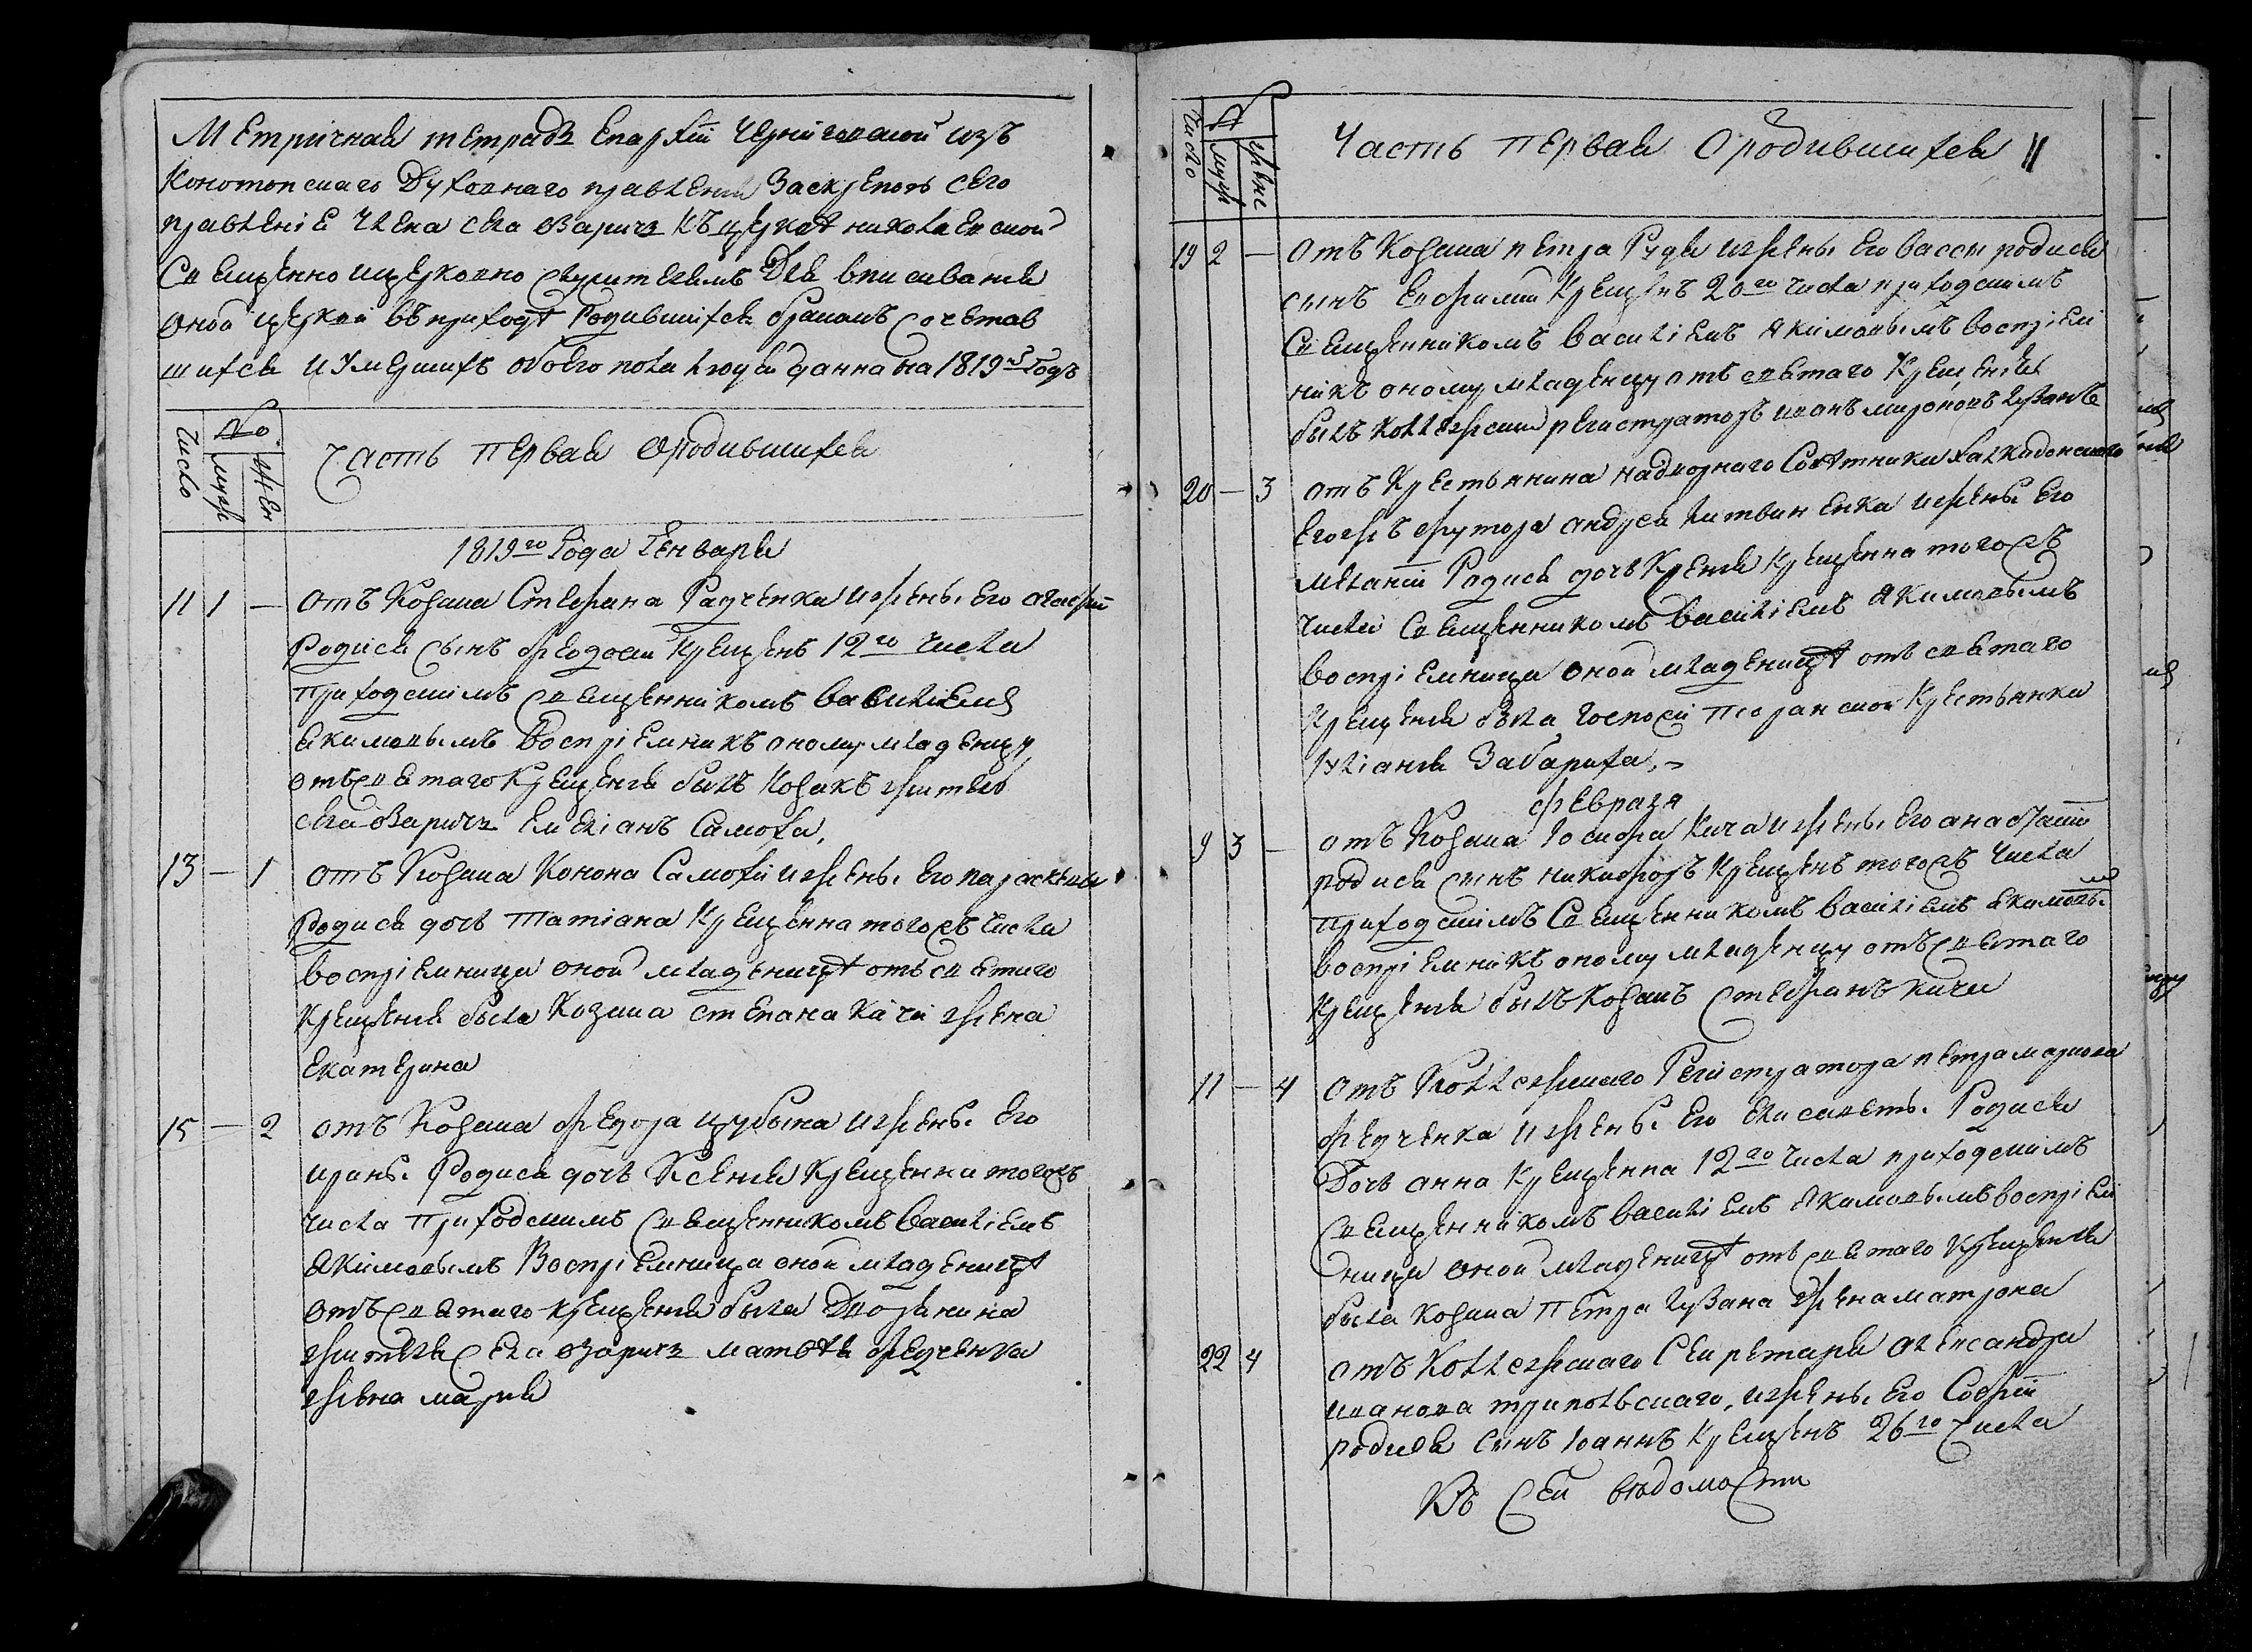 Метричная тетрадь Епархіи Черниговской изъ
Конотопского Духовнаго правленія Заскрепою сего
правленіе Члена села Озарич къ церквѣ николаевской
Священно ицерковно служителямъ Для вписиванія
оной церкви въ приходѣ Родившихся бракомъ сочетав
шихся и Умершихъ обоего пола людей данна на 1819й Годъ
Число
№
муж
жен
Часть первая Ородившихся
1819го Года Генваря
11 1 — Отъ Козака Стефана Радченка и жены его агафіи
Родися сынъ феодосій крещенъ 12го числа
Приходскимъ священникомъ василіем
Якимовымъ Воспріемникъ оному младенцу
отъ святаго крещенія былъ козакъ житель
села Озарич Емеліанъ Самоха,
13 — 1 Отъ Козака Конона Самохи и жены его параскевы
Родися дочь Татіана крещенна тогожъ числа
воспріемница оной младеницѣ отъ святаго
крещенія была Козака степана качи жена
екатерина
15 — 2 отъ Козака федора цубыка и жены его
ирины Родися дочь Ксенія крещенна тогожъ
числа приходскимъ священникомъ василіемъ
Якимовымъ Воспріемница оной младеницѣ
отъ святаго крещенія была Дворянина
жителя села озарич матвѣя федченка
жена марія
Число
№
муж
женс
Часть первая Ородившихся
19 2 — Отъ Козака петра Рудя и жены его вассы родися
сынъ Евфимій крещенъ 20го числа приходскимъ
Священникомъ василіемъ Якимовымъ воспріем
никъ оному младенцу отъ святаго крещенія
былъ коллежский регистраторъ иванъ мироновъ
20 — 3 отъ крестьянина надворнаго Совѣтника халкидонского
андрея литвиненка и жены его
меланіи Родися дочь Ксенія крещенна тогожъ
числа священникомъ василіемъ Якимовымъ
воспріемница оной младеницѣ отъ святаго
крещенія была госпожи крестьянка
Уліанія Забариха,
февраля
9 3 — отъ Козака Іосифа Кича и жены его анастасіи
родися сынъ никифоръ крещенъ тогожъ числа
приходскимъ Священникомъ василіемъ Якимовым
воспріемникъ оному младенцу отъ святаго
крещенія былъ козакъ стефанъ кича
11 — 4 Отъ Коллежскаго Регистратора петра маркова
федченка и жены его елисаветы Родися
Дочь анна крещенна 12го числа приходскимъ
священникомъ василіемъ Якимовымъ воспріем
ница оной младеницѣ отъ святаго крещенія
была козака петра жена матрона
22 4 отъ Коллежскаго Секретаря александра
иванова трипольского, и жены его Софіи
родися сынъ Іоаннъ крещенъ 26го числа
Въ сей вѣдомости